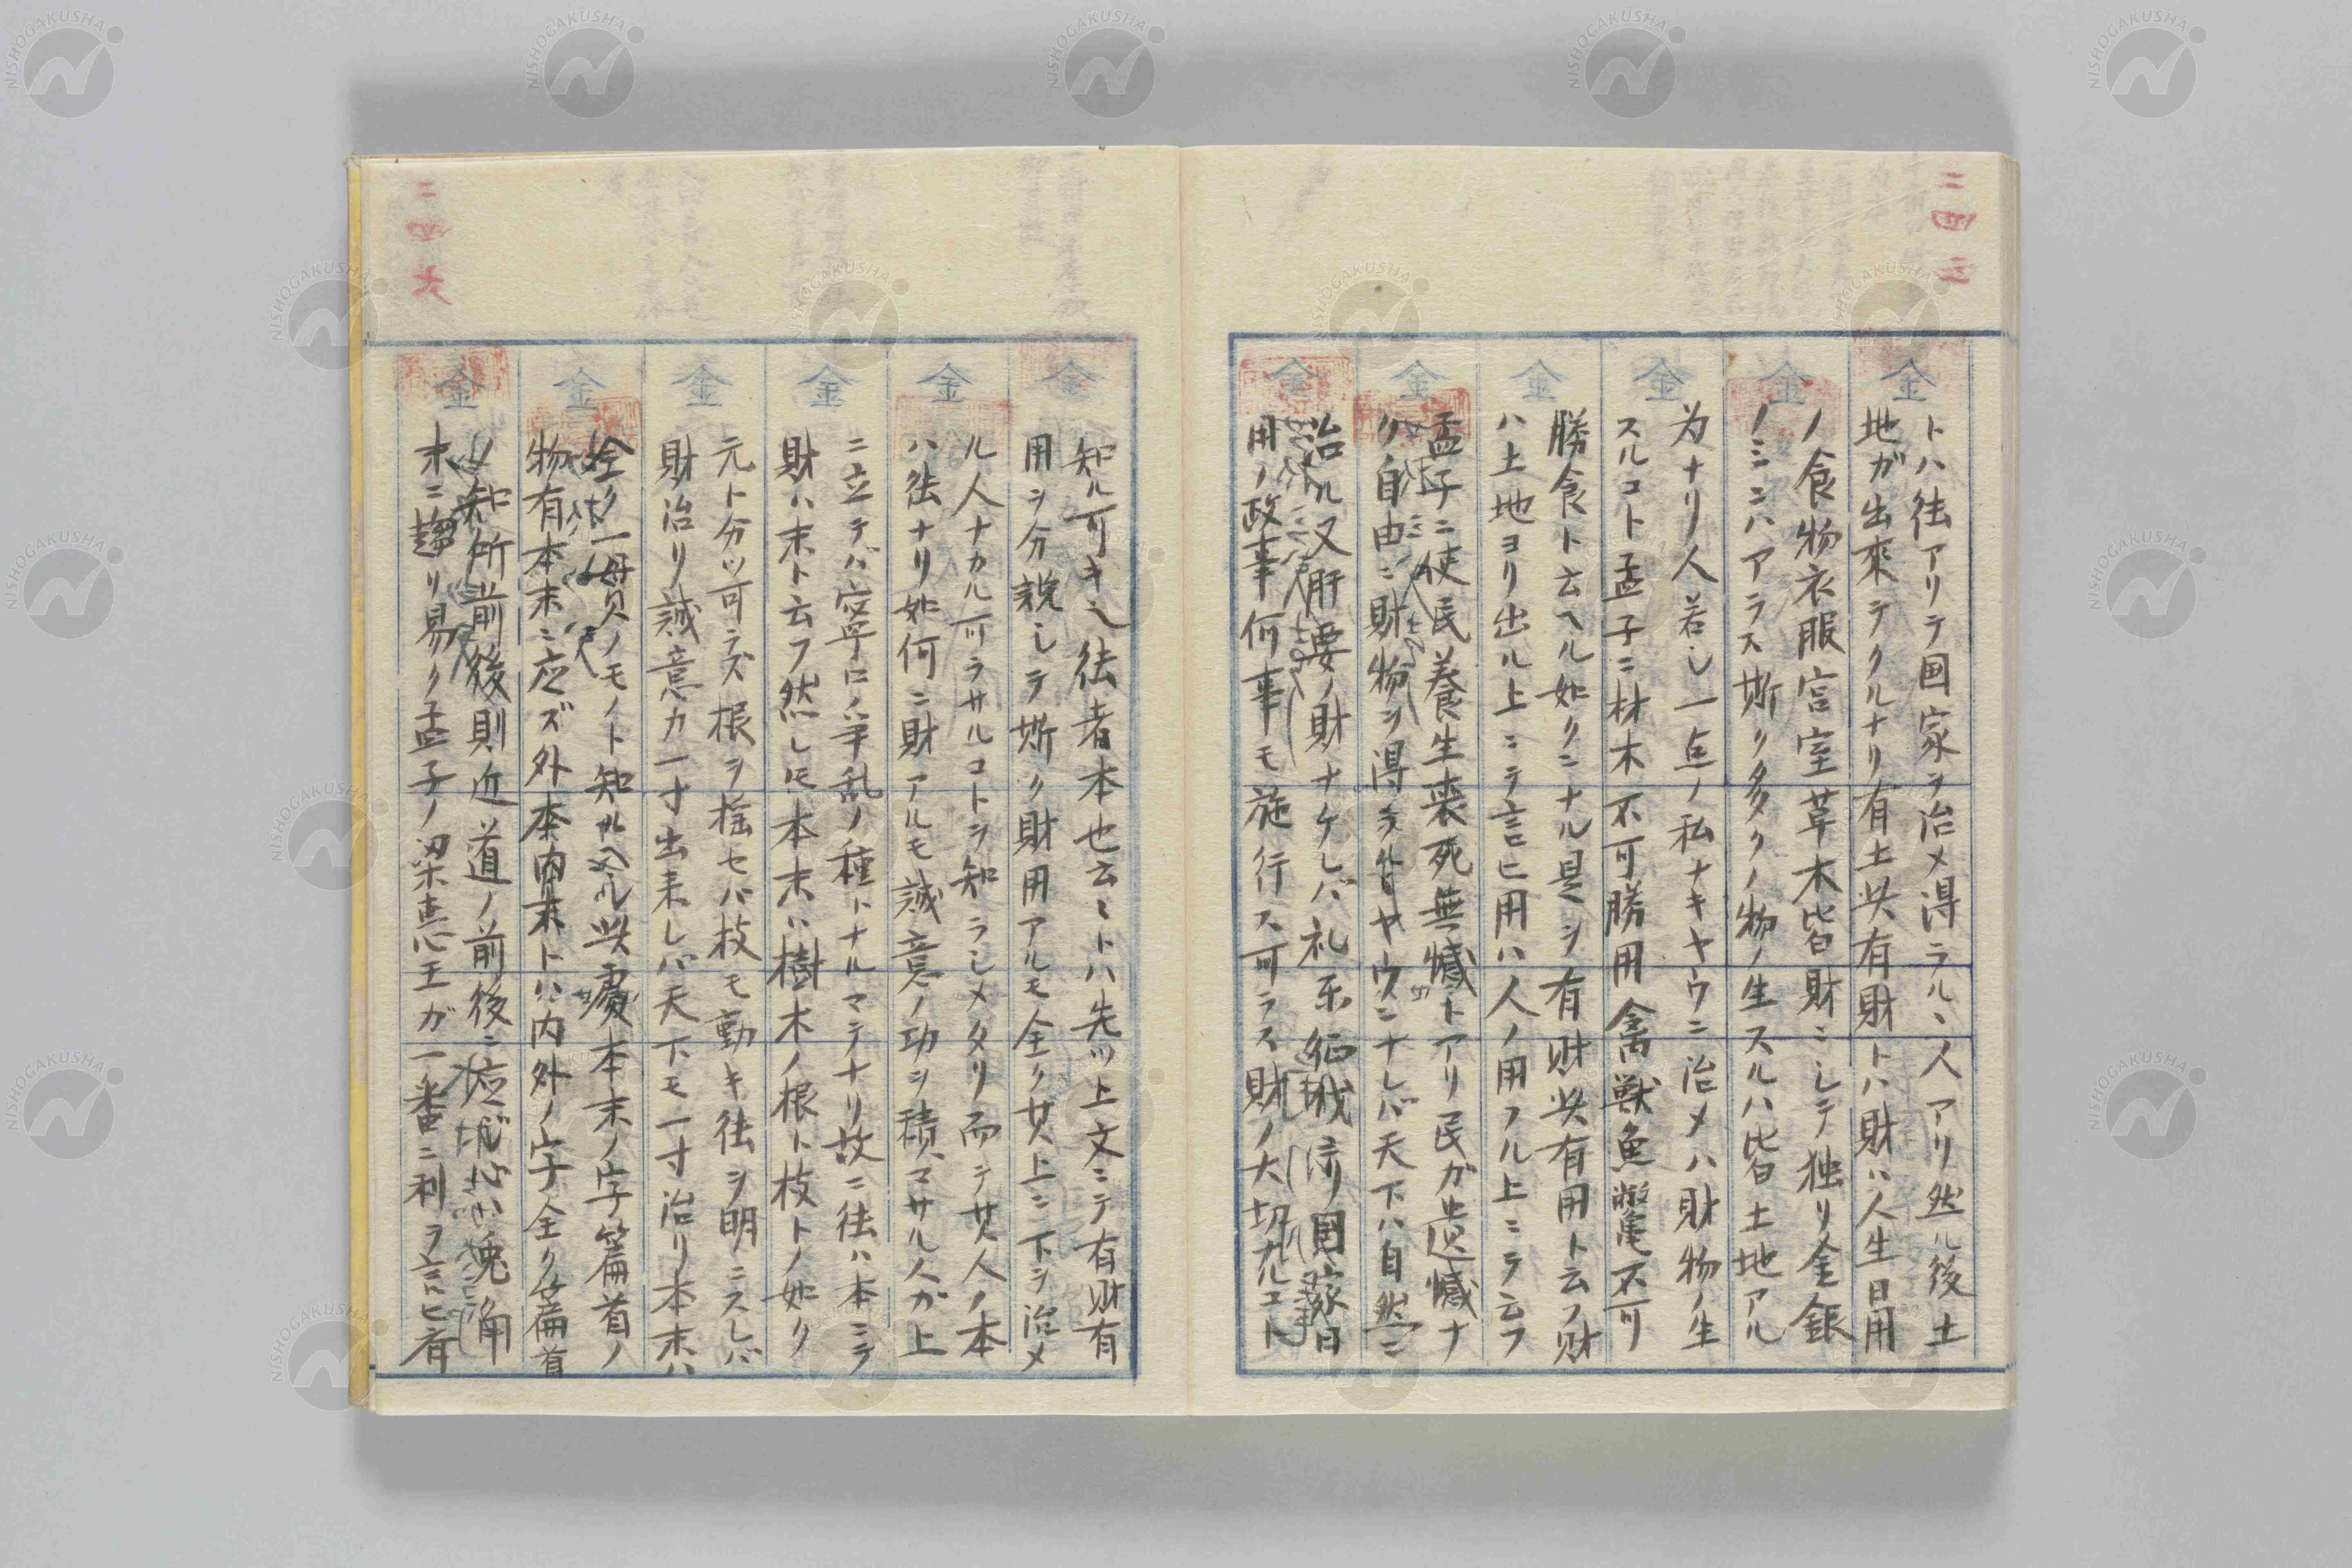 二四三
トハ徳アリテ国家ヲ治メ得ラルヽ人アリ然ル後土
地ガ出來テクルナリ有土此有財トハ財ハ人生日用
ノ食物衣服宮室草木皆財ニシテ独リ金銀
ノミニハアラス斯ク多クノ物ノ生スルハ皆土地アル
为ナリ人若シ一点ノ私ナキヤウニ治メハ財物ノ生
スルコト孟子ニ材木不可勝用禽獣魚鼈不可
勝食ト云ヘル如クニナル是ヲ有財此有用ト云フ財
ハ土地ヨリ出ル上ニテ言ヒ用ハ人ノ用フル上ニテ云フ
孟子ニ使民養生喪死無憾トアリ民ガ遺憾ナ
ク自由ニ財物ヲ得ラルヤウニナレバ天下ハ自然ニ
治ル又肝要ノ財ナケレバ礼乐征伐ヨリ国家日
用ノ政事何事モ施行ス可ラス財ノ大切ナルコト
二四六
知ル可キ也徳者本也云々トハ先ツ上文ニテ有財有
用ヲ分説シテ斯ク財用アルモ全ク其上ニ下ヲ治メ
ル人ナカル可ラサルコトヲ知ラシメタリ而シテ其人ノ本
ハ徳ナリ如何ニ財アルモ誠意ノ功ヲ積マサル人ガ上
ニ立テバ寧ロ爭乱ノ種トナルマテナリ故ニ徳ハ本ニテ
財ハ末ト云フ然シ𪜈本末ハ樹木ノ根ト枝トノ如ク
元ト分ツ可ラズ根ヲ揺セバ枝モ動キ徳ヲ明ニスレバ
財治リ誠意カ一寸出来レバ天下モ一寸治リ本末ハ
全ク一貫ノモノト知ルヘシ此處本末ノ字篇首ノ
物有本末ニ应ズ外本内末トハ内外ノ字全ク篇首
ノ知所前後則近道ノ前後ニ应ズ
末ニ趨リ易ク孟子ノ梁恵王ガ一番ニ利ヲ言ヒ者